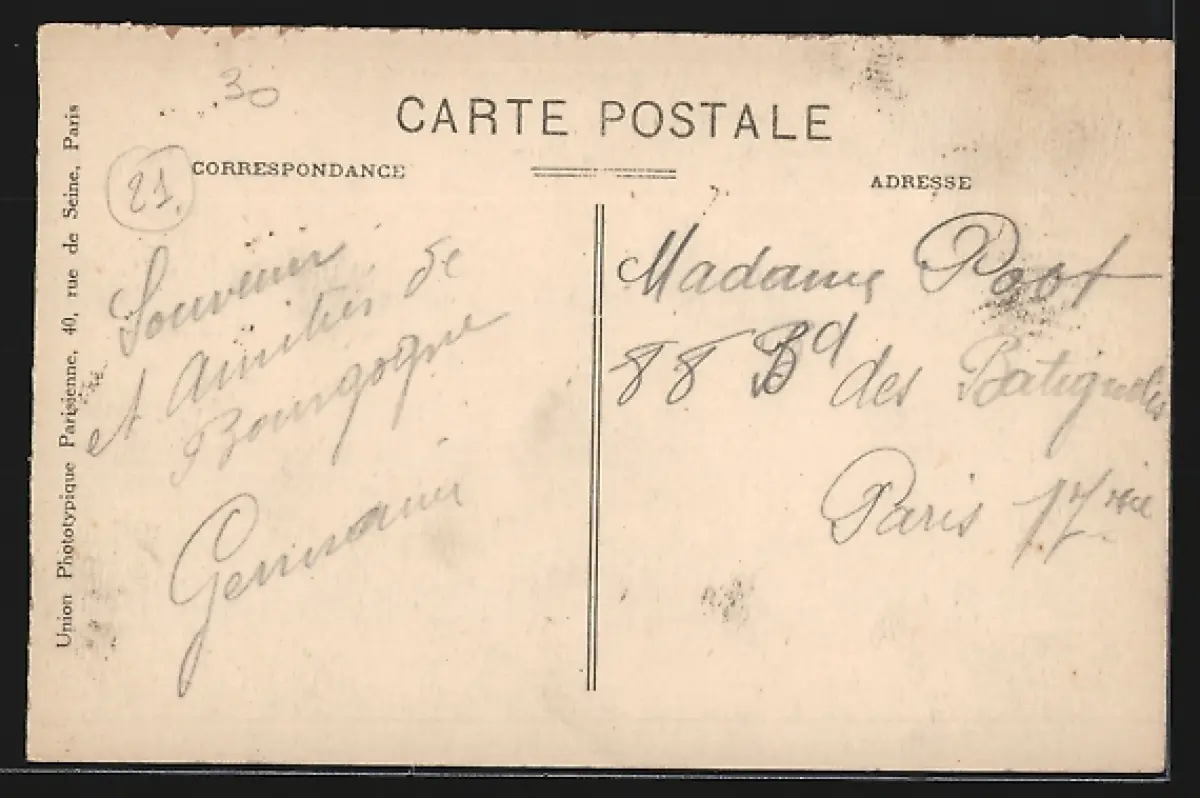 30
CARTE POSTALE
CORRESPONDANCE
ADRESSE
21
Union Phototypique Parisienne, 40, rue de Seine, Paris
Souvenir
et Amitiés de
Bourgogne
Germaine
Madame Poot
88 Bd des Batignolles
Paris 17